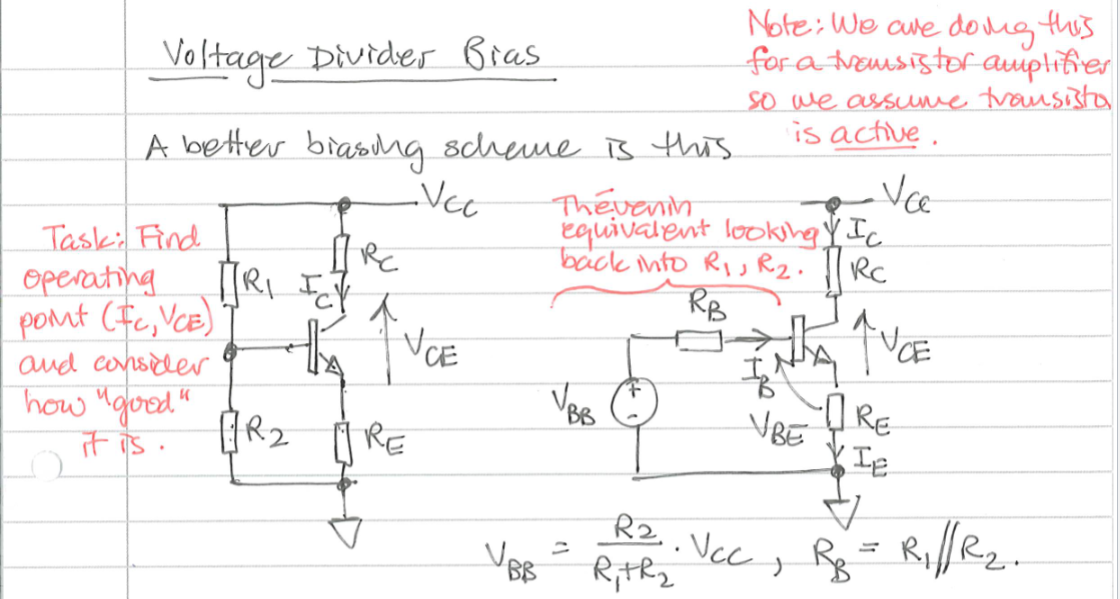 Voltage Divider Bias
Note: We are doing this
for a transistor amplifier
so we assume transisto
is active.
A better biasing scheme is this
Task: Find
operating
point (IC, VCE)
and consider
how "good"
it is.
VCC
RC
R1
IC
VCE
R2
RE
Thévenin
equivalent looking
back into R1, R2.
VCC
IC
RC
RB
VCE
IB
VBB
+
-
VBE
RE
IE
VBB = R2/(R1+R2) . VCC, RB = R1//R2.